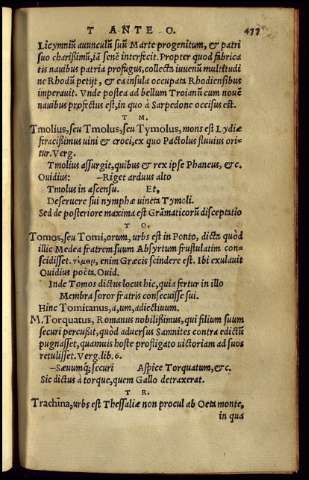 T ANTE O. 477
Licymniũ auunculũ suũ Marte progenitum, & patri
suo charissimũ, iã senẽ interfecit. Propter quod fabrica
tis nauibus patria profugus, collecta iuuenũ multitudi
ne Rhodũ petijt, & ea insula occupata Rhodiensibus
imperauit. Vnde postea ad bellum Troianũ cum nouẽ
nauibus profectus est, in quo à Sarpedone occisus est.
T M.
Tmolius, seu Tmolus, seu Tymolus, mons est Lydiæ
feracissimus uini & croci, ex quo Pactolus fluuius ori-
tur. Verg.
Tmolius assurgit, quibus & rex ipse Phaneus, &c.
Ouidius: –Riget arduus alto
Tmolus in ascensu. Et,
Deseruere sui nymphæ uineta Tymoli.
Sed de posteriore maxima est Grãmaticorũ disceptatio
T O.
Tomos, seu Tomi, orum, urbs est in Ponto, dicta quòd
illic Medea fratrem suum Absyrtum frustulatim con-
scidisset. enim Græcis scindere est. Ibi exulauit
Ouidius poëta. Ouid.
Inde Tomos dictus locus hic, quia fertur in illo
Membra soror fratris consecuisse sui.
Hinc Tomitanus, a, um, adiectiuum.
M. Torquatus, Romanus nobilissimus, qui filium suum
securi percussit, quòd aduersus Samnites contra edictũ
pugnasset, quamuis hoste profligato uictoriam ad suos
retulisset. Verg. lib. 6.
–Sæuumq; securi Aspice Torquatum, &c.
Sic dictus à torque, quem Gallo detraxerat.
T R.
Trachina, urbs est Thessaliæ non procul ab Oeta monte,
in qua